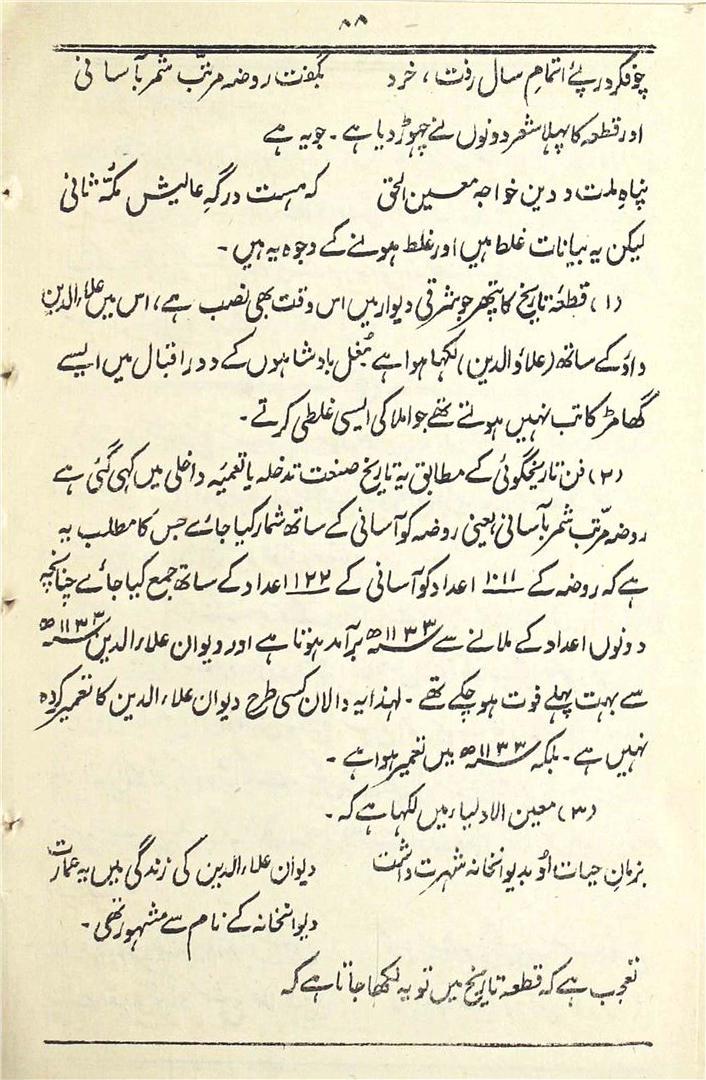 ۸۸
چو فکر در پئے اتمامِ سال رفت، خرد بگفت روضہ مرتّب شمر بآسانی
اور قطعہ کا پہلا شعر دونوں نے چھوڑ دیا ہے۔ جو یہ ہے
پناہِ ملت و دین خواجہ معین الحق کہ ہست درگہِ عالیش مکّہ ثانی
لیکن یہ بیانات غلط ہیں اور غلط ہونے کے وجوہ یہ ہیں۔
(۱) قطعۂ تاریخ کا پتھر جو شرقی دیوار میں اس وقت بھی نصب ہے، اس میں علاءالدین
واؤ کے ساتھ (علاؤالدین) لکھا ہوا ہے مُغل بادشاہوں کے دور اقبال میں ایسے
گھامڑ کاتب نہیں ہوتے تھے جو املا کی ایسی غلطی کرتے۔
(۲) فن تاریخگوئی کے مطابق یہ تاریخ صنعت تدخلہ یا تعمیہ داخلی میں کہی گئی ہے
روضہ مرّتب شمر بآسانی، یعنی روضہ کو آسانی کے ساتھ شمار کیا جائے جس کا مطلب یہ
ہے کہ روضہ کے ۱۰۱۱ اعداد کو آسانی کے ۱۲۲ اعداد کے ساتھ جمع کیا جائے چنانچہ
دونوں اعداد کے ملانے سے ۱۱۳۳ھ برآمد ہوتا ہے اور دیوان علاءالدین ۱۱۳۳ھ
سے بہت پہلے فوت ہو چکے تھے۔ لہذا یہ دالان کسی طرح دیوان علاءالدین کا تعمیر کردہ
نہیں ہے۔ بلکہ ۱۱۳۳ھ میں تعمیر ہوا ہے۔
(۳) معین الاولیاء میں لکھا ہے کہ۔
بزمانِ حیات اُو بدیوانخانہ شہرت داشت دیوان علاءالدین کی زندگی میں یہ عمارت
دیوانخانہ کے نام سے مشہور تھی۔
تعجب ہے کہ قطعہ تاریخ میں تو یہ لکھا جاتا ہے کہ